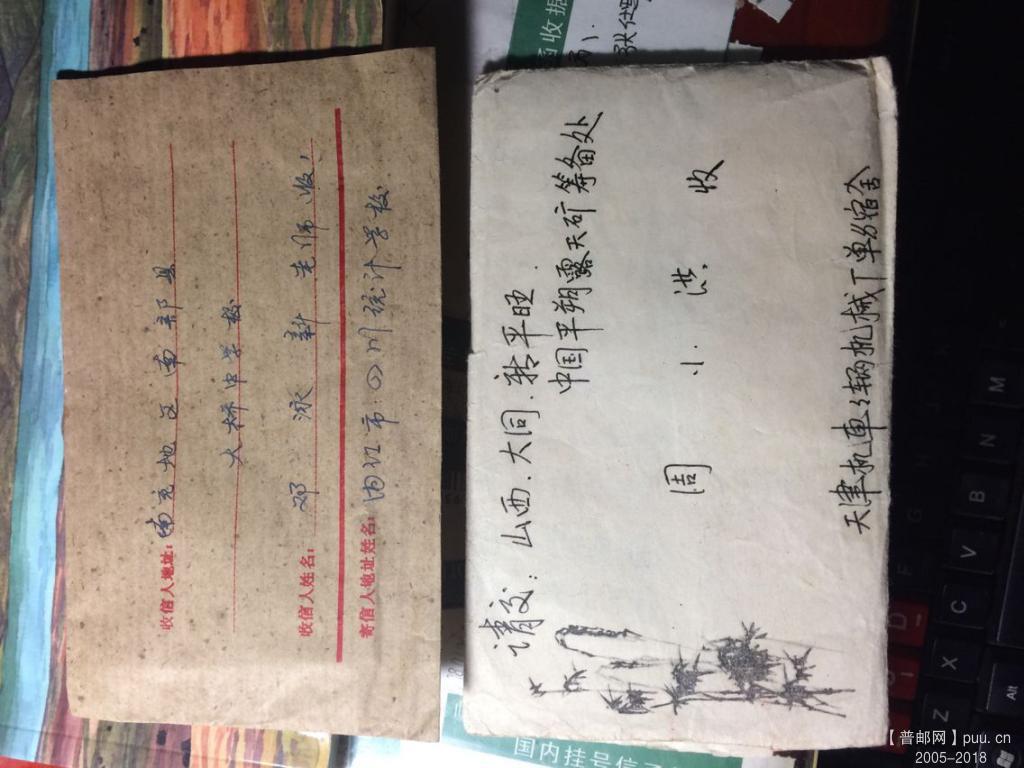 收信人地址：南充地区南部县
大桥中学校
收信人姓名：邓泳新老师收
寄信人地址姓名：内江市四川统计学校
请交：山西．大同．转平旺．
中国平朔露天矿筹备处
周小洪收
天津机车车辆机械厂单身宿舍
国内挂号信
【普邮网】puu.cn
2005-2018
Z
X
C
V
B
N
M
D
F
G
Alt